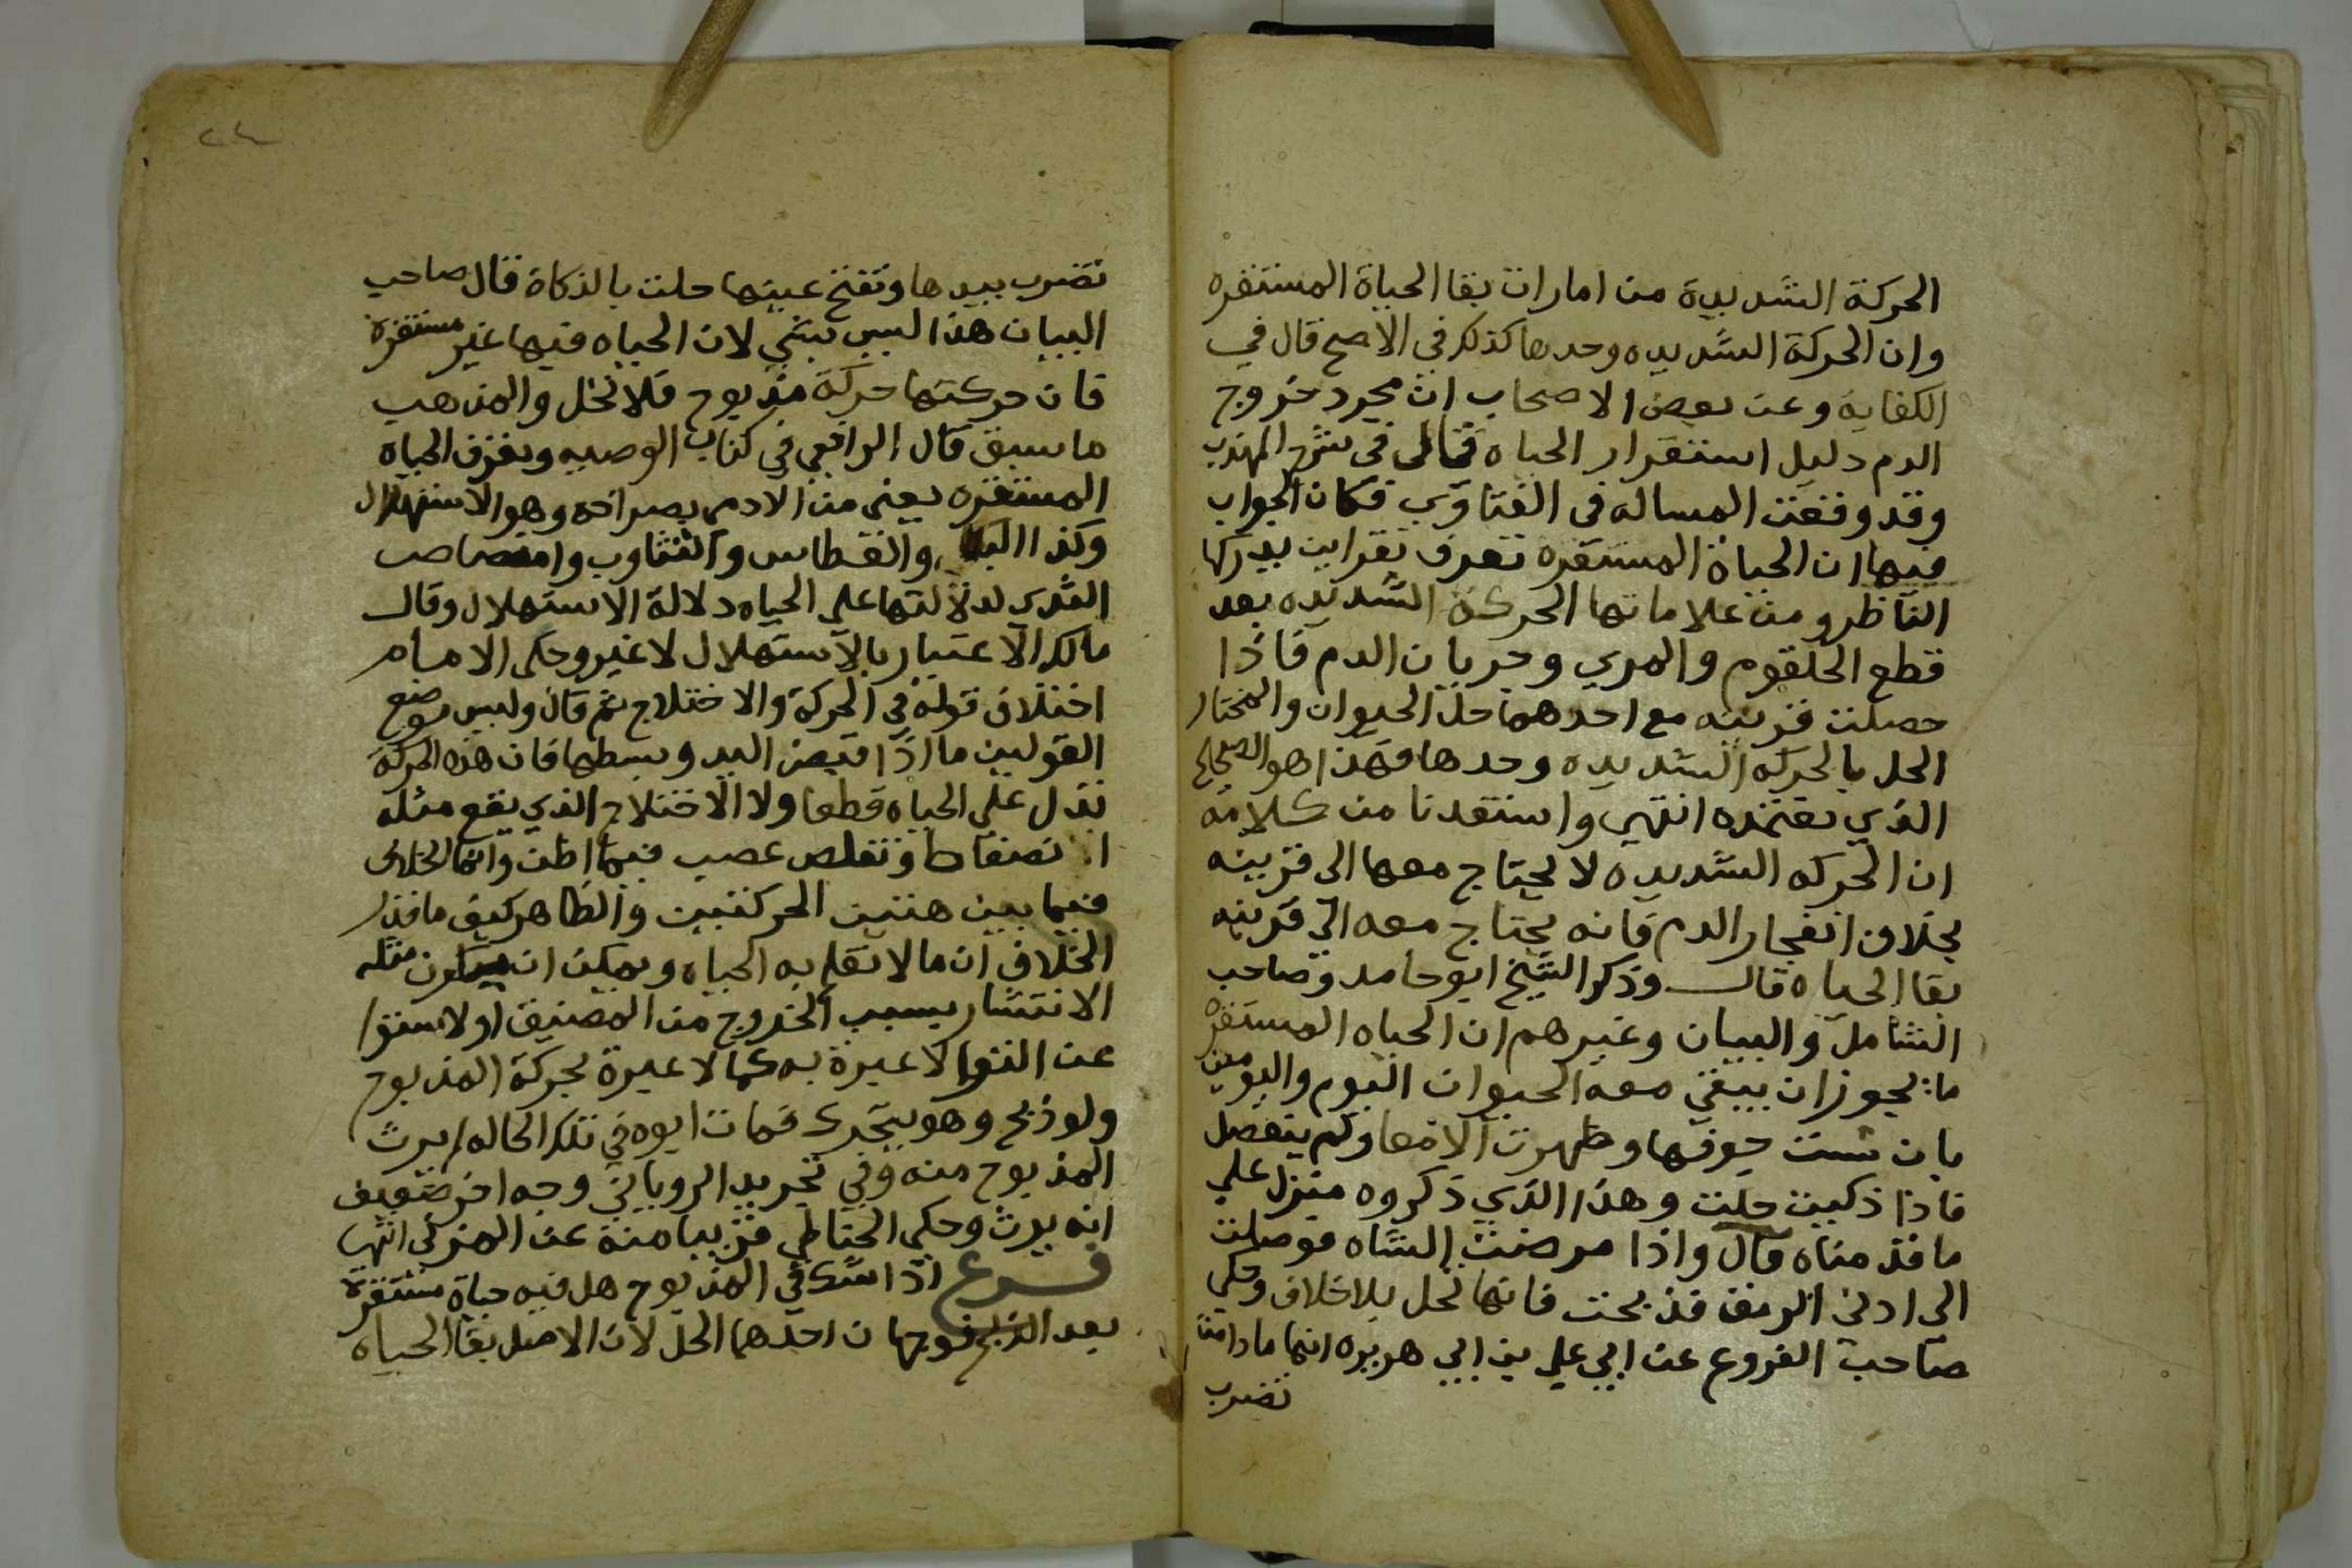 الحركة الشديدة من امارات بقا الحياة المستقره
وان الحركة الشديده وحدها كذلك في الاصح قال في
الكفاية وعن بعض الاصحاب ان مجرد خروج
الدم دليل استقرار الحياه قال في شرح المهذب
وقد وقعت المساله في الفتاوي فكان الجواب
فيها ان الحياة المستقره تعرف بقراين يدركها
الناظر ومن علاماتها الحركة الشديده بعد
قطع الحلقوم والمري وجريان الدم فاذا
حصلت قرينه مع احدهما حل الحيوان والمختار
الحل بالحركه الشديده وحدها فهذا هو الصحيح
الذي نعتمده انتهي واستفدنا من كلامه
ان الحركه الشديده لا يحتاج معها الى قرينه
بخلاف انفجار الدم فانه يحتاج معه الي قرينه
بقا الحياه قال وذكر الشيخ ابو حامد وصاحب
الشامل والبيان وغيرهم ان الحياه المستقره
ما يجوز ان يبقي معه الحيوان اليوم واليومين
بان شق جوفها وظهرت الامعا ولم ينفصل
فاذا ذكيت حلت وهذا الذي ذكروه منزل علي
ما قدمناه قال واذا مرضت الشاه فوصلت
الي ادني الرمق فذبحت فانها تحل بلا خلاف وحكي
صاحب الفروع عن ابي علي بن ابي هريره انها ما دامت
تضرب
٢٤
تضرب بيدها وتفتح عينها حلت بالذكاة قال صاحب
البيان هذا ليس بشي لان الحياه فيها غير مستقرة
فان حركتها حركة مذبوح فلا تحل والمذهب
ما سبق قال الرافعي في كتاب الوصيه وتعرف الحياه
المستقره يعنى من الادمي بصراخه وهو الاستهلال
وكذا البكا والعطاس والتثاوب وامتصاص
الثدي لدلالتها على الحياه دلالة الاستهلال وقال
مالك الاعتبار بالاستهلال لا غير وحكى الامام
اختلاف قوله في الحركة والاختلاج ثم قال وليس موضع
القولين ما اذا قبض اليد وبسطها فان هذه الحركة
تدل علي الحياه قطعا ولا الاختلاج الذي يقع مثله
انضغاط وتقلص عصب فيما اظن وانما الخلاف
فيما بين هتين الحركتين والظاهر كيف ما قدر
الخلاف ان ما لا تعلم به الحياه ويمكن ان يكون مثله
الانتشار بسبب الخروج من المضيق او لاستوا
عن التوا لا عبرة به كما لا عبرة بحركة المذبوح
ولو ذبح وهو يتحرك فمات ابوه في تلك الحاله لم يرث
المذبوح منه وفي تجريد الروياني وجه اخر ضعيف
انه يرث وحكي الحناطي قريبا منه عن المزني انتهى
فرع اذا شك في المذبوح هل فيه حياة مستقرة
بعد الذبح فوجهان احدهما الحل لان الاصل بقا الحياه